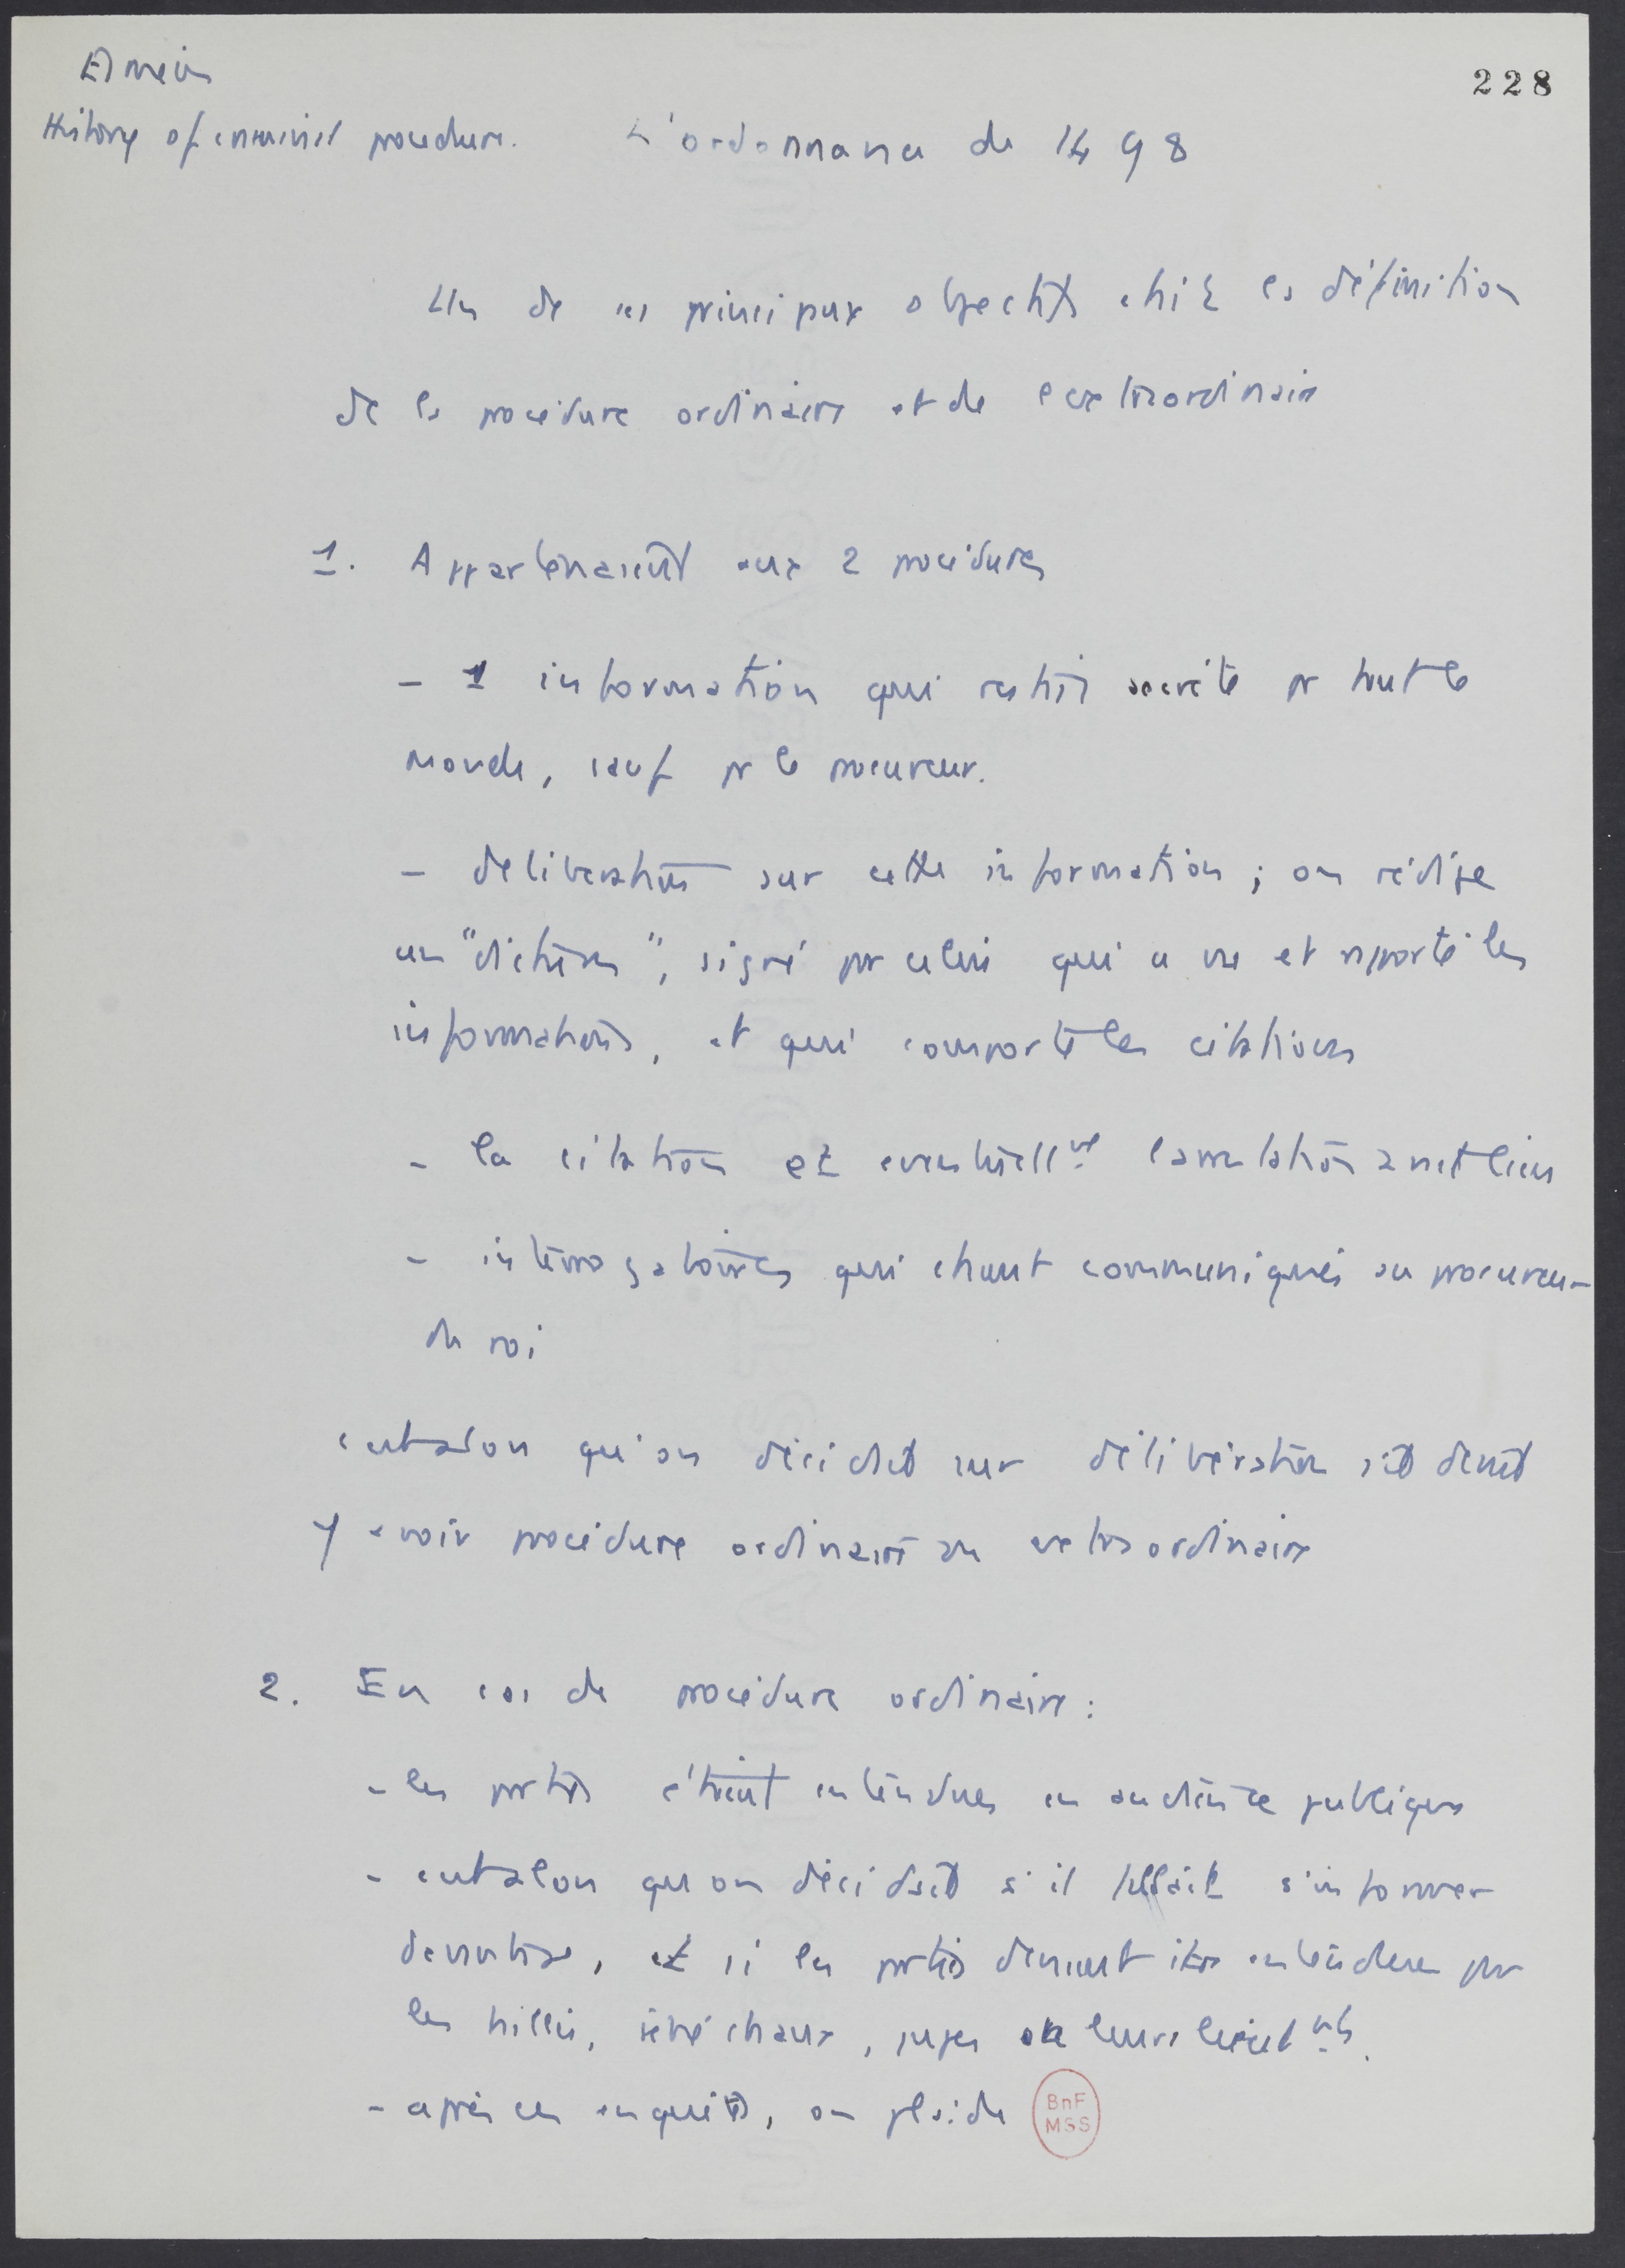 Esmein
228
History of criminal procedure. L'ordonnance de 1498
Un de ses principaux objectifs était la définition
de la procédure ordinaire et de l'extraordinaire
1. Appartenaient aux 2 procédures
- 1 information qui restait secrète pr tout le
monde, sauf pr le procureur.
- délibération sur cette information ; on rédige
un "dictum", signé par celui qui a vu et rapporté les
informations, et qui comporte les citations
- la citation et eventuellnt l'arrestation avait lieu
- interrogatoires qui étaient communiqués au procureur
du roi
c'est alors qu'on décidait sur délibération s'il devait
y avoir procédure ordinaire ou extraordinaire
2. En cas de procédure ordinaire :
- les parties étaient entendues en audience publique
- c'est alors qu'on décidait s'il fallait s'informer
davantage, et si les parties devaient être entendues par
les baillis, sénéchaux, juges ou leurs lieutnts.
- après ces enquêtes, on plaide
BnF
MSS